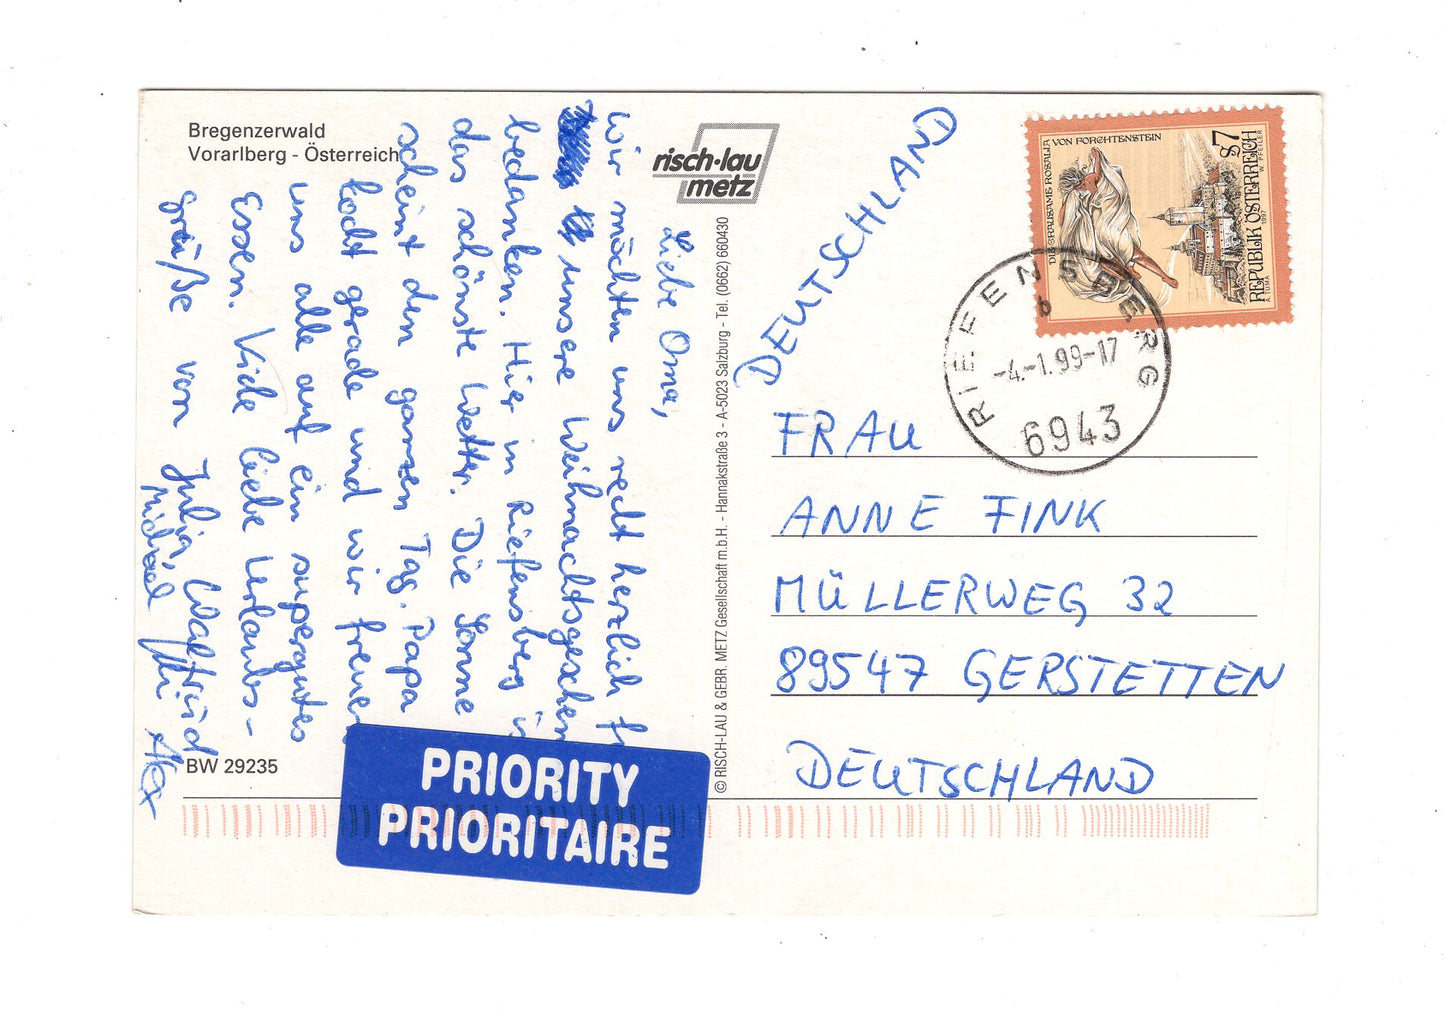 Bregenzerwald
Vorarlberg - Österreich
risch-lau
metz
Liebe Oma,
wir möchten uns recht herzlich f
unsere Weihnachtsgeschen
bedanken. Hier in Riefensberg is
das schönste Wetter. Die Sonne
scheint den ganzen Tag. Papa
kocht gerade und wir freuen
uns alle auf ein supergutes
Essen. Viele liebe Urlaubs-
grüße von Julia, Waltraud
Michael
BW 29235
© RISCH-LAU & GEBR. METZ Gesellschaft m.b.H. - Hannakstraße 3 - A-5023 Salzburg - Tel. (0662) 660430
PRIORITY
PRIORITAIRE
DEUTSCHLAND
DIE GRAUSAME ROSALIA VON FORCHTENSTEIN
S7
REPUBLIK ÖSTERREICH
A. TUMA 1997 W. PFEILER
RIEFENSBERG
b
-4.-1.99-17
6943
FRAU
ANNE FINK
MÜLLERWEG 32
89547 GERSTETTEN
DEUTSCHLAND